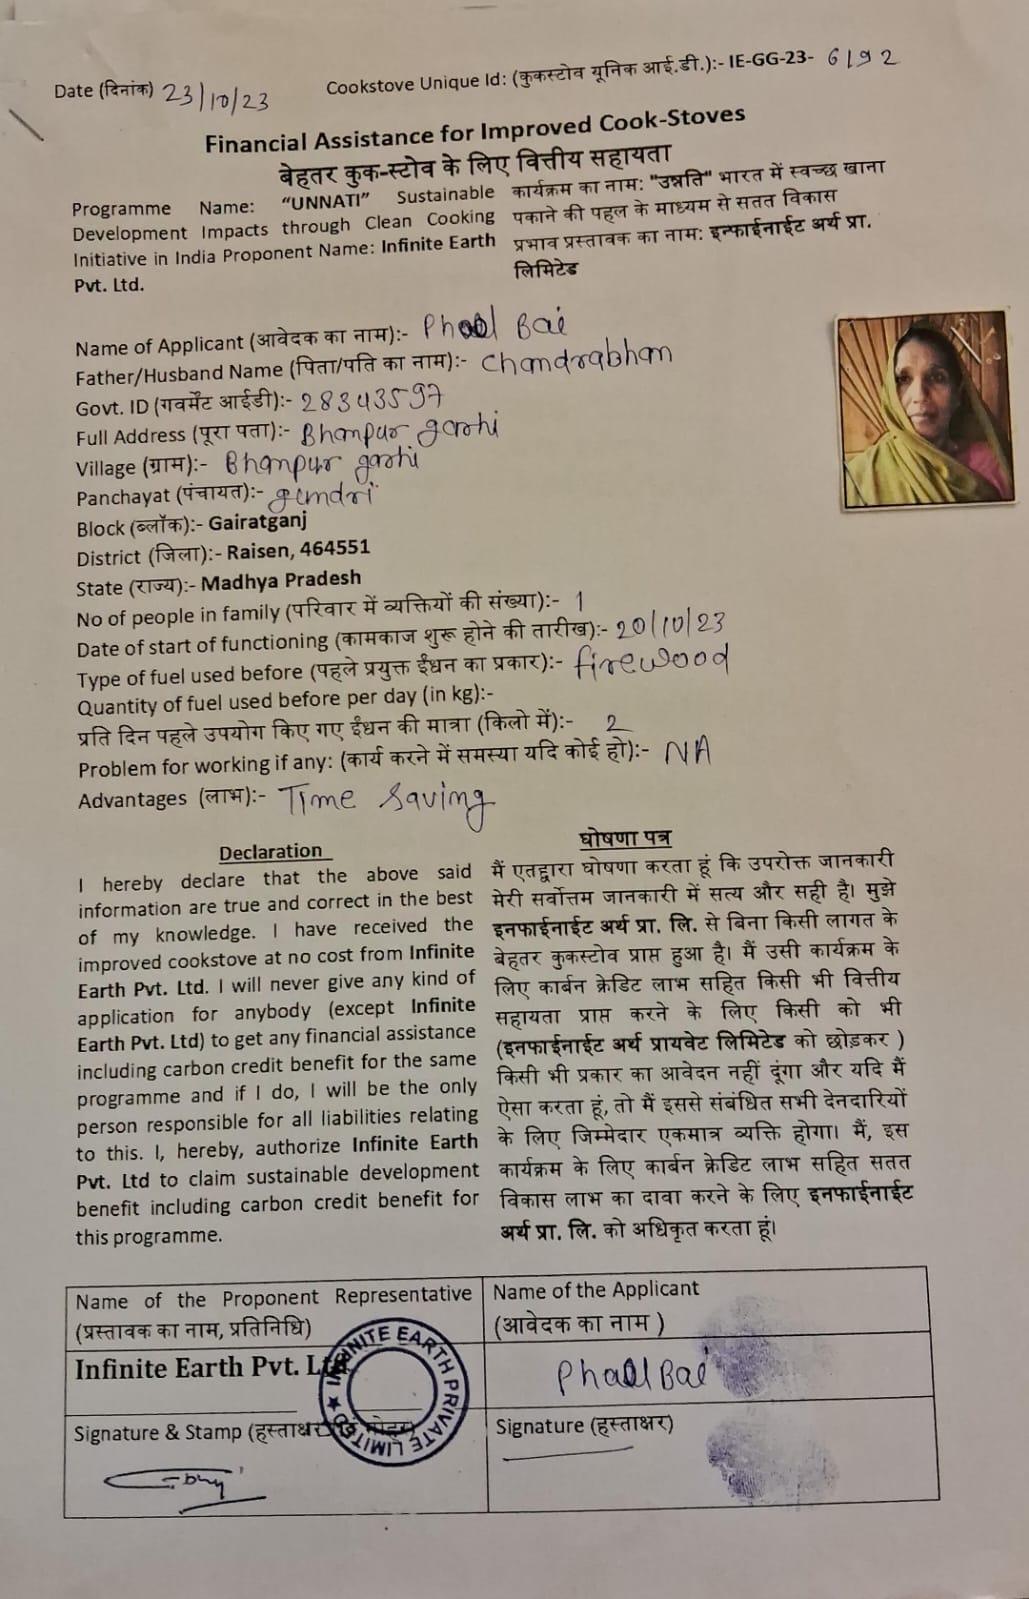 Date (दिनांक) 23/10/23
Cookstove Unique Id: (कुकस्टोव यूनिक आई.डी.):- IE-GG-23- 6192
Financial Assistance for Improved Cook-Stoves
बेहतर कुक-स्टोव के लिए वित्तीय सहायता
Programme Name: “UNNATI” Sustainable
Development Impacts through Clean Cooking
Initiative in India Proponent Name: Infinite Earth
Pvt. Ltd.
कार्यक्रम का नाम: "उन्नति" भारत में स्वच्छ खाना
पकाने की पहल के माध्यम से सतत विकास
प्रभाव प्रस्तावक का नाम: इन्फाईनाईट अर्थ प्रा.
लिमिटेड
Name of Applicant (आवेदक का नाम):- Phool Bai
Father/Husband Name (पिता/पति का नाम):- Chandrabhan
Govt. ID (गवर्मेंट आईडी):- 28343597
Full Address (पूरा पता):- Bhanpur garhi
Village (ग्राम):- Bhanpur garhi
Panchayat (पंचायत):-
Block (ब्लॉक):- Gairatganj
District (जिला):- Raisen, 464551
State (राज्य):- Madhya Pradesh
No of people in family (परिवार में व्यक्तियों की संख्या):- 1
Date of start of functioning (कामकाज शुरू होने की तारीख):- 20/10/23
Type of fuel used before (पहले प्रयुक्त ईंधन का प्रकार):- firewood
Quantity of fuel used before per day (in kg):-
प्रति दिन पहले उपयोग किए गए ईंधन की मात्रा (किलो में):- 2
Problem for working if any: (कार्य करने में समस्या यदि कोई हो):- NA
Advantages (लाभ):- Time Saving
Declaration
I hereby declare that the above said
information are true and correct in the best
of my knowledge. I have received the
improved cookstove at no cost from Infinite
Earth Pvt. Ltd. I will never give any kind of
application for anybody (except Infinite
Earth Pvt. Ltd) to get any financial assistance
including carbon credit benefit for the same
programme and if I do, I will be the only
person responsible for all liabilities relating
to this. I, hereby, authorize Infinite Earth
Pvt. Ltd to claim sustainable development
benefit including carbon credit benefit for
this programme.
घोषणा पत्र
मैं एतद्वारा घोषणा करता हूं कि उपरोक्त जानकारी
मेरी सर्वोत्तम जानकारी में सत्य और सही है। मुझे
इनफाईनाईट अर्थ प्रा. लि. से बिना किसी लागत के
बेहतर कुकस्टोव प्राप्त हुआ है। मैं उसी कार्यक्रम के
लिए कार्बन क्रेडिट लाभ सहित किसी भी वित्तीय
सहायता प्राप्त करने के लिए किसी को भी
(इनफाईनाईट अर्थ प्रायवेट लिमिटेड को छोड़कर )
किसी भी प्रकार का आवेदन नहीं दूंगा और यदि मैं
ऐसा करता हूं, तो मैं इससे संबंधित सभी देनदारियों
के लिए जिम्मेदार एकमात्र व्यक्ति होगा। मैं, इस
कार्यक्रम के लिए कार्बन क्रेडिट लाभ सहित सतत
विकास लाभ का दावा करने के लिए इनफाईनाईट
अर्थ प्रा. लि. को अधिकृत करता हूं।
Name of the Proponent Representative
(प्रस्तावक का नाम, प्रतिनिधि)
Name of the Applicant
(आवेदक का नाम )
Infinite Earth Pvt. Ltd
Phool Bai
INFINITE EARTH PRIVATE LIMITED
Signature & Stamp (हस्ताक्षर
Signature (हस्ताक्षर)